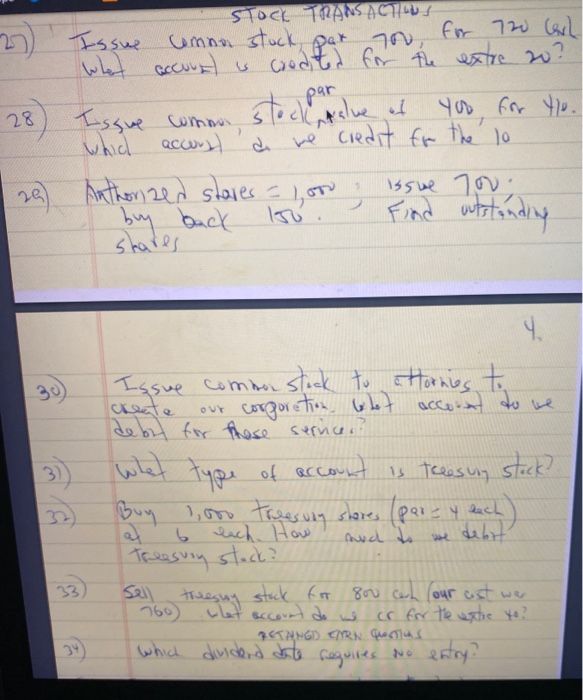 STOCK TRANSACTIONS
27) Issue common stock, par 700, for 720 cash
What account is credited for the extra 20?
par
28) Issue common stock, value of 400, for 410.
Which account do we credit for the 10
29) Authorized shares = 1,000; issue 700;
buy back 150. Find outstanding
shares
4.
30) Issue common stock to attornies to
create our corporation. What account do we
debit for these services?
31) What type of account is treasury stock?
32) Buy 1,000 treasury shares (par = 4 each)
at 6 each. How much do we debit
treasury stock?
33) Sell treasury stock for 800 cash (our cost was
760) what account do we cr for the extra 40?
RETAINED EARN QUESTIONS
34) Which dividend date requires no entry?